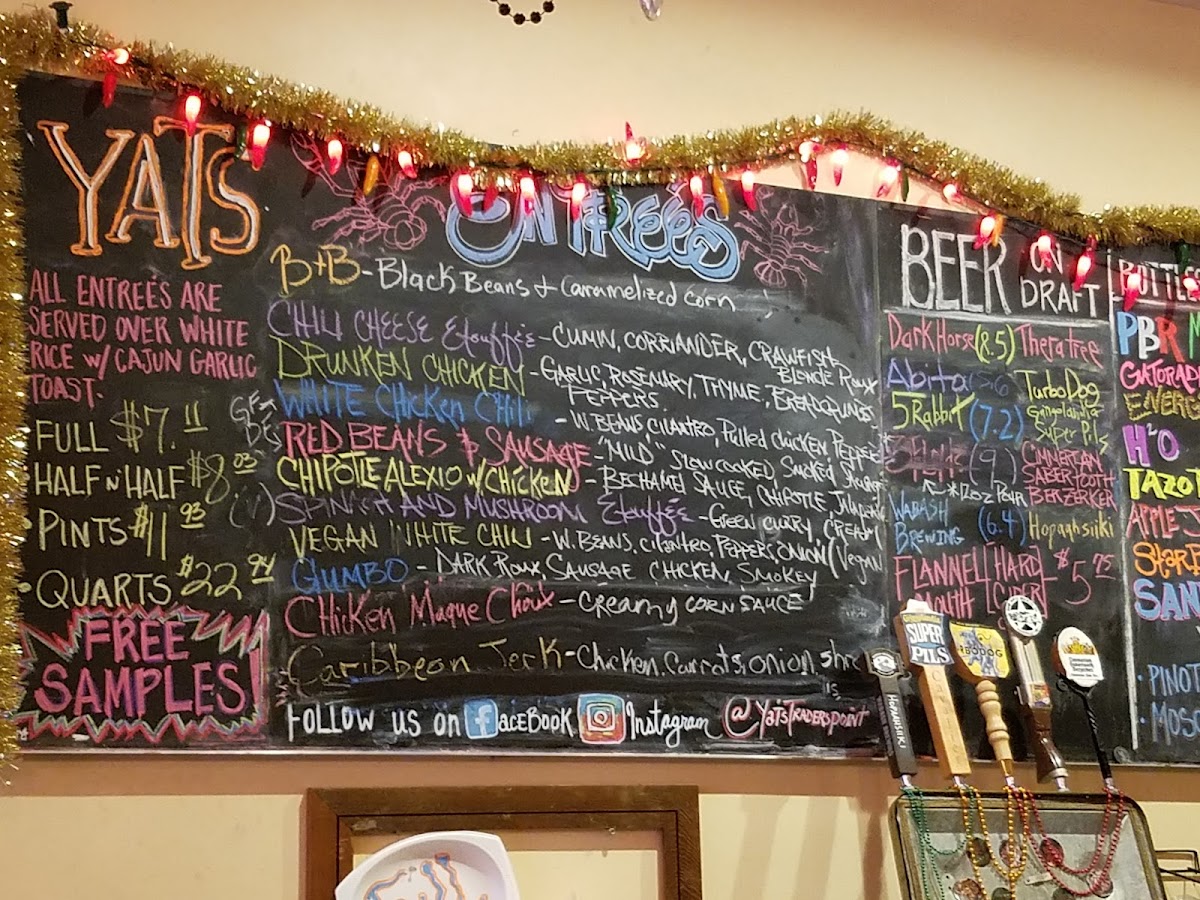 YATS
ALL ENTREÉS ARE
SERVED OVER WHITE
RICE w/ CAJUN GARLIC
TOAST.
FULL $7.11
HALF n HALF $8.03
PINTS $11.93
QUARTS $22.94
FREE
SAMPLES
ENTREÉS
B+B - Black Beans + Caramelized Corn
CHILI CHEESE Etouffée - CUMIN, CORRIANDER, CRAWFISH
BLONDE ROUX
DRUNKEN CHICKEN - GARLIC, ROSEMARY, THYME, BREADCRUMBS
PEPPERS
WHITE CHICKEN CHILI - W. BEANS, CILANTRO, Pulled chicken Pepper
RED BEANS & SAUSAGE - "MILD" SLOW COOKED, Smoked Sausage
CHIPOTLE ALEXIO w/ CHICKEN - BECHAMEL SAUCE, CHIPOTLE,
(V) SPINACH AND MUSHROOM Etouffée - GREEN CURRY, CREAM
VEGAN WHITE CHILI - W. BEANS, CILANTRO, PEPPERS, ONION (Vegan
GUMBO - DARK Roux, SAUSAGE CHICKEN, SMOKEY
CHICKEN Maque Choux - Creamy CORN SAUCE
Caribbean Jerk - Chicken, Carrots, onion
FOLLOW US ON FaceBook Instagram @YATSTRADERSPOINT
BEER ON
DRAFT
Dark Horse (8.5) Theratree
Abita TURBO DOG
5 Rabbit (7.2) Gongolandia
Super Pils
(9) CIMMERIAN
SABERTOOTH
BERZERKER
*12oz POUR
WABASH
BREWING (6.4) Hopaahsiiki
FLANNEL
MOUTH [HARD
CIDER] - $5.75
BOTTLE
PBR
GATORAD
ENERG
H2O
TAZO
APPLE J
STAR
SAN
PINOT
MOSC
SUPER
PILS